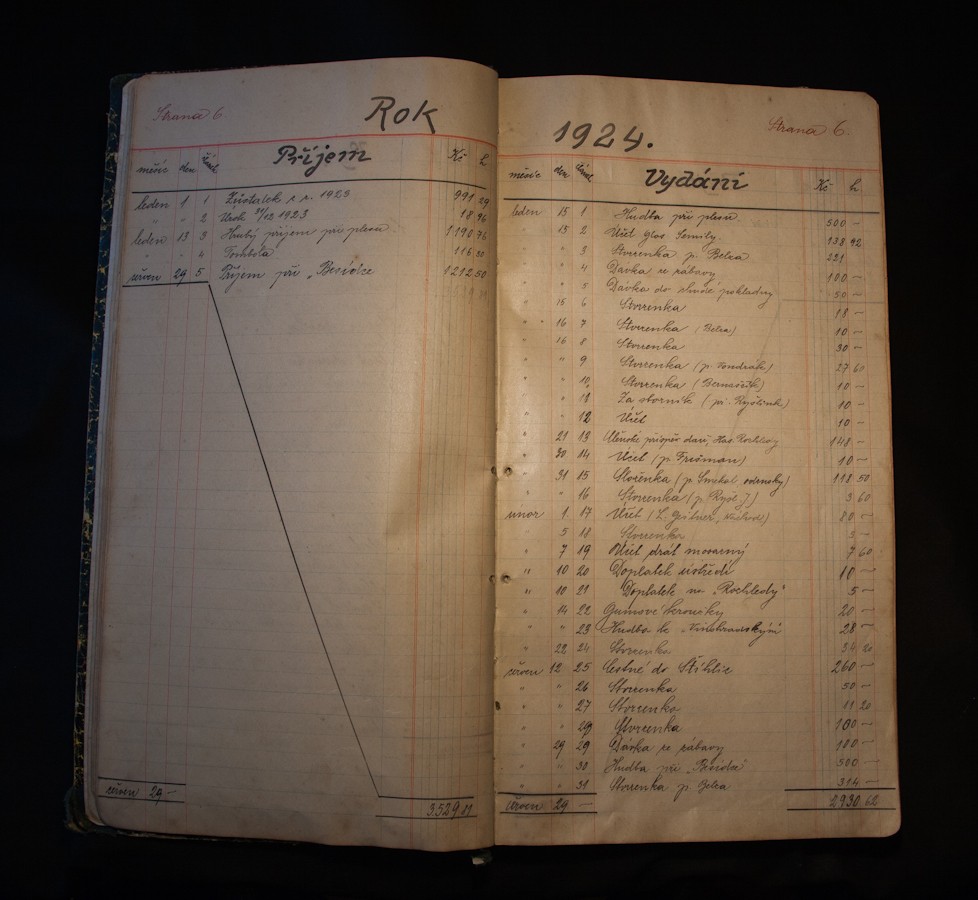 Strana 6
Rok
měsíc den Příjem Kč h
leden 1 1 Zůstatek z r. 1923 991 29
" " 2 Úrok 31/12 1923 18 96
leden 13 3 Hrubý příjem při plesu 1190 76
" " 4 Tombola 116
červen 29 5 Příjem při „Besídce 1212 50
červen 29 —
3.529 81
1924.
Strana 6.
měsíc den Vydání Kč h
leden 15 1 Hudba při plesu 500 —
15 2 Účet Semily 138 92
" 3 Stvrzenka p. Belza 221
" 4 Dávka ze zábavy 100 —
" 5 Dávka do pokladny 50 —
15 6 Stvrzenka 13 —
" 16 7 Stvrzenka (Belza) 10 —
16 8 Stvrzenka 30 —
" " 9 Stvrzenka (p. Vondrák) 27 60
" " 10 Stvrzenka 10 —
" " 11 Za 10 —
" " 12 Účet 10 —
" 21 13 148 —
" 30 14 Účet (p. Frišman) 10 —
" 31 15 Složenka (p. 118 50
" " 16 Stvrzenka (p. Ryšl J.) 3 60
únor 1 17 Účet 80 —
" 5 18 Stvrzenka 3 —
" 7 19 Účet drát mosazný 7 60
" 10 20 Doplatek ústředí 10 —
" 10 21 Doplatek na „Rozhledy" 5 —
" 14 22 Gumové 20 —
" " 23 Hudba k „Vinohradským 28 —
" 22 24 Stvrzenka 34 20
červen 12 25 Cestné do Stíblic 260 —
" " 26 Stvrzenka 50 —
" " 27 Stvrzenka 11 20
" " 28 Stvrzenka 100 —
" 29 29 Dávka ze zábavy 100 —
" " 30 Hudba při „Besídce" 500 —
" " 31 Stvrzenka p. Belza 314 —
červen 29 — 2930 62